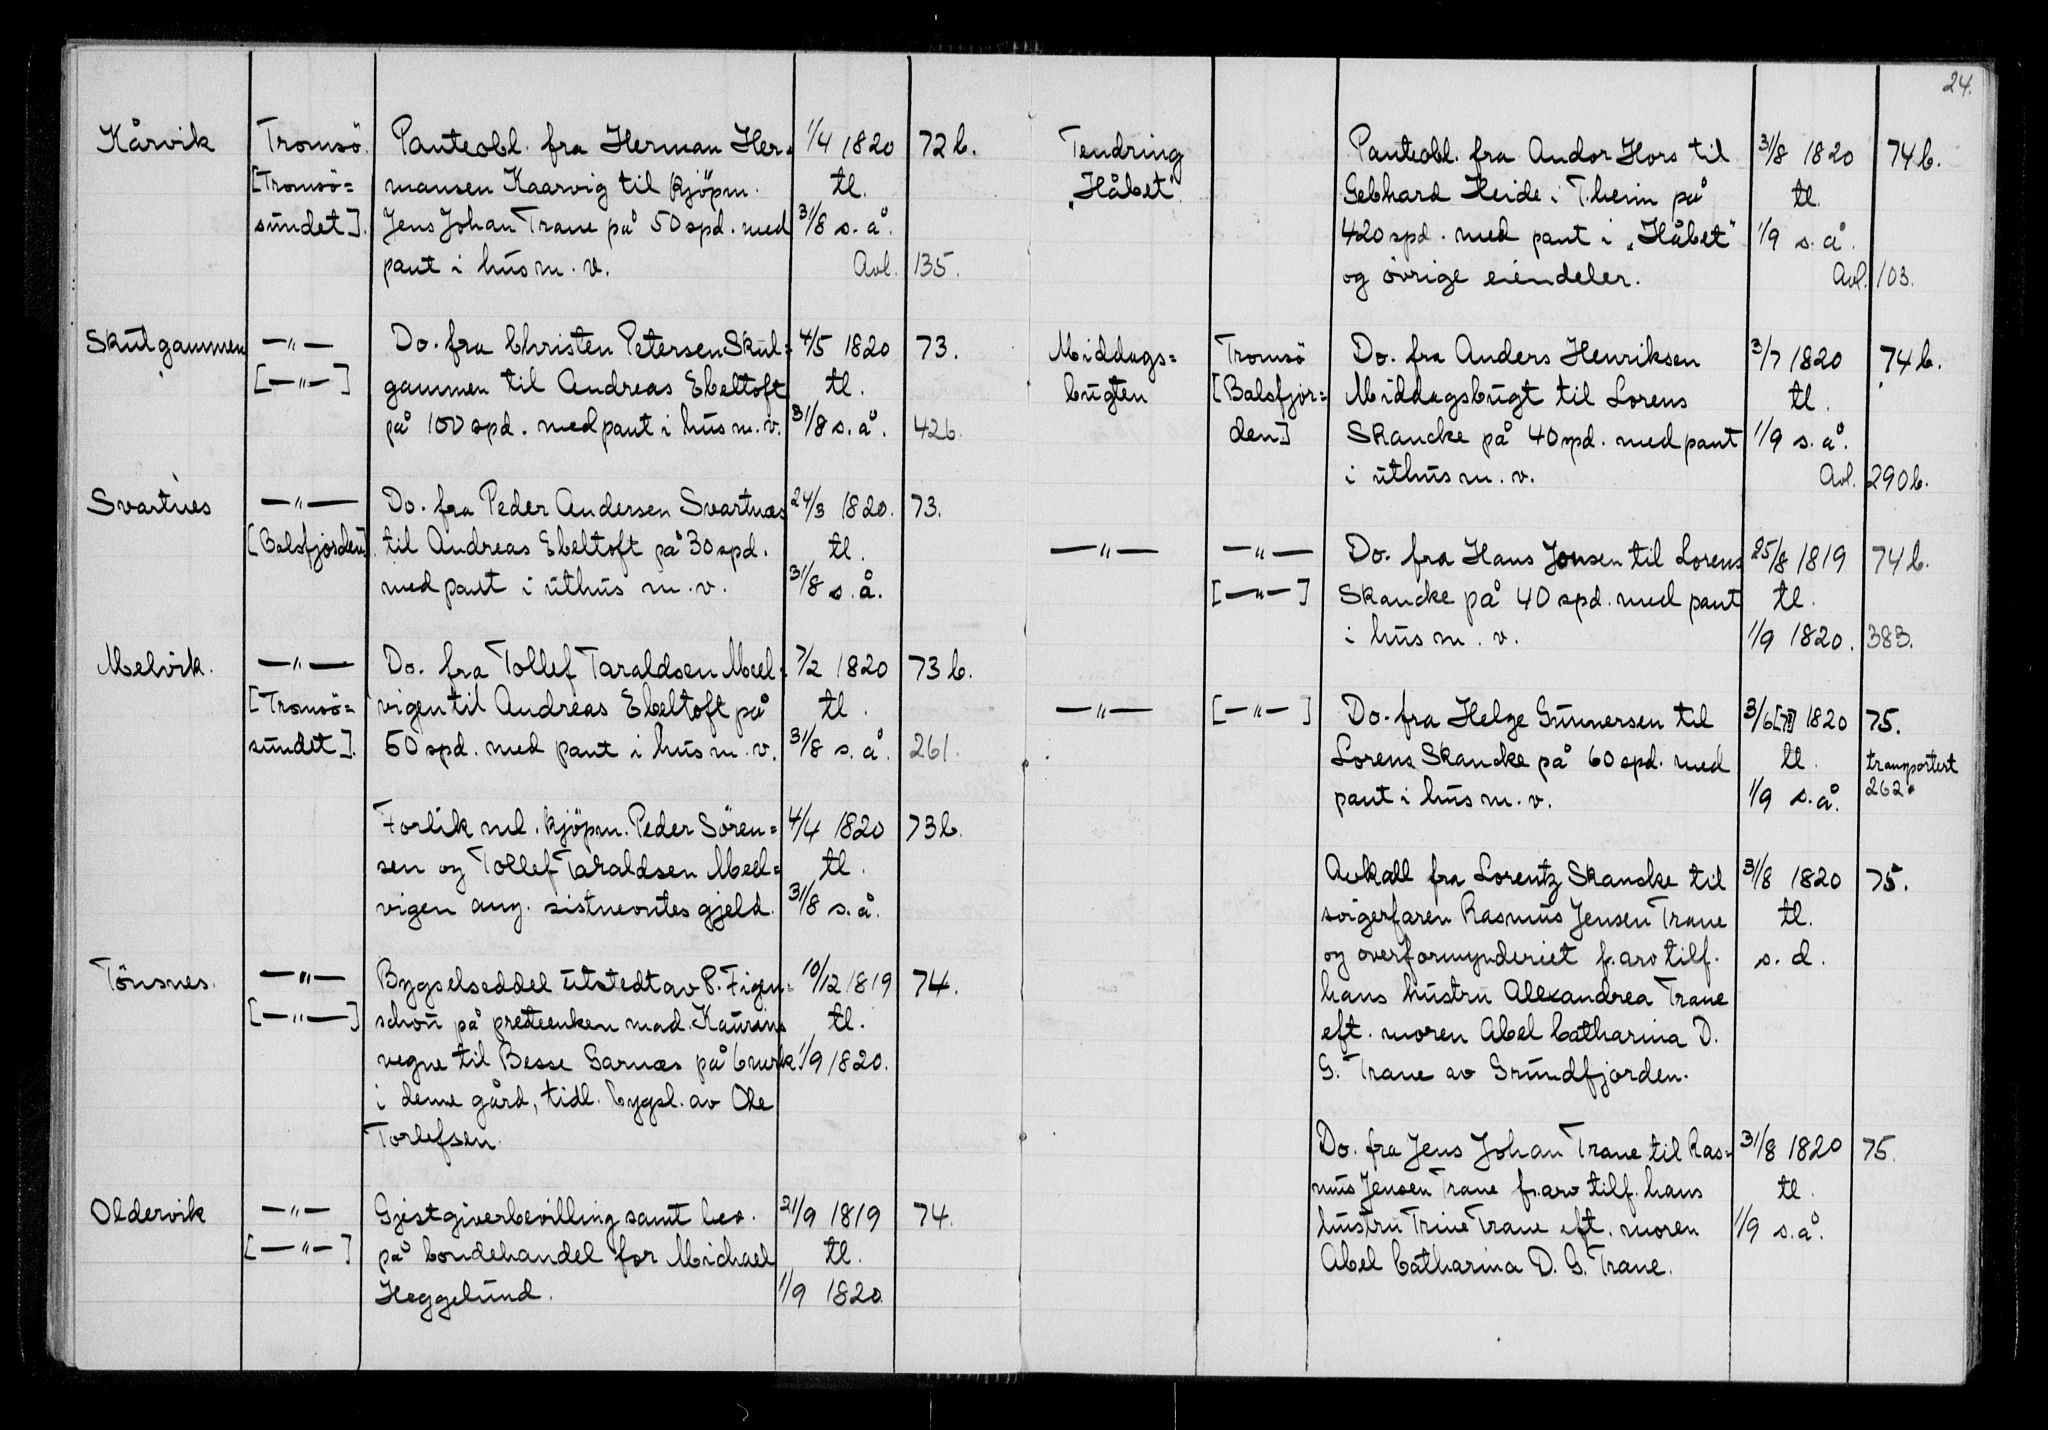 24.
Kårvik Tromsö. Panteobl. fra Herman Her= 1/4 1820 72 b.
[Tromsö= mansen Kaarvig til kjöpm. tl.
sundet]. Jens Johan Trane på 50 spd. med 31/8 s. å.
pant i hus m. v. Avl. 135.
Skulgammen —"— Do. fra Christen Petersen Skul= 4/5 1820 73.
[—"—] gammen til Andreas Ebeltoft tl.
på 100 spd. med pant i hus m. v. 31/8 s. å. 426.
Svartnes —"— Do. fra Peder Andersen Svartnæs 24/3 1820. 73.
[Balsfjorden]. til Andreas Ebeltoft på 30 spd. tl.
med pant i uthus m. v. 31/8 s. å.
Melvik. —"— Do. fra Tollef Taraldsen Meel= 7/2 1820 73 b.
[Tromsö= vigen til Andreas Ebeltoft på tl.
sundet]. 50 spd. med pant i hus m. v. 31/8 s. å. 261.
Forlik ml. kjöpm. Peder Sören= 4/4 1820 73 b.
sen og Tollef Taraldsen Meel= tl.
vigen ang. sistnevntes gjeld. 31/8 s. å.
Tönsnes. —"— Bygselseddel utstedt av P. Figen= 10/12 1819 74.
[—"—] schou på presteenken mad. Kaurins tl.
vegne til Besse Garnæs på 6 mrk. 1/9 1820.
i denne gård, tidl. bygsl. av Ole
Torlefsen.
Oldervik —"— Gjestgiverbevilling samt bev. 21/9 1819 74.
[—"—] på bondehandel for Michael tl.
Heggelund. 1/9 1820.
Tendring Panteobl. fra Andor Hors til 31/8 1820 74 b.
„Håbet". Gebhard Heide i T.heim på tl.
420 spd. med pant i „Håbet" 1/9 s. å.
og övrige eiendeler. Avl. 103.
Middags= Tromsö Do. fra Anders Henriksen 3/7 1820 74 b.
bugten [Balsfjor= Middagsbugt til Lorens tl.
den] Skancke på 40 spd. med pant 1/9 s. å.
i uthus m. v. Avl. 290 b.
—"— —"— Do. fra Hans Jonsen til Lorens 25/8 1819 74 b.
[—"—] Skancke på 40 spd. med pant tl.
i hus m. v. 1/9 1820. 383.
—"— [—"—] Do. fra Helge Gunnersen til 3/6 [7?] 1820 75.
Lorens Skancke på 60 spd. med tl. transportert
pant i hus m. v. 1/9 s. å. 262.
Avkall fra Lorentz Skancke til 31/8 1820 75.
svigerfaren Rasmus Jensen Trane tl.
og overformynderiet f. arv tilf. s. d.
hans hustru Alexandrea Trane
eft. moren Abel Catharina D.
G. Trane av Grundfjorden.
Do. fra Jens Johan Trane til Ras= 31/8 1820 75.
mus Jensen Trane f. arv tilf. hans tl.
hustru Trine Trane eft. moren 1/9 s. å.
Abel Catharina D. G. Trane.